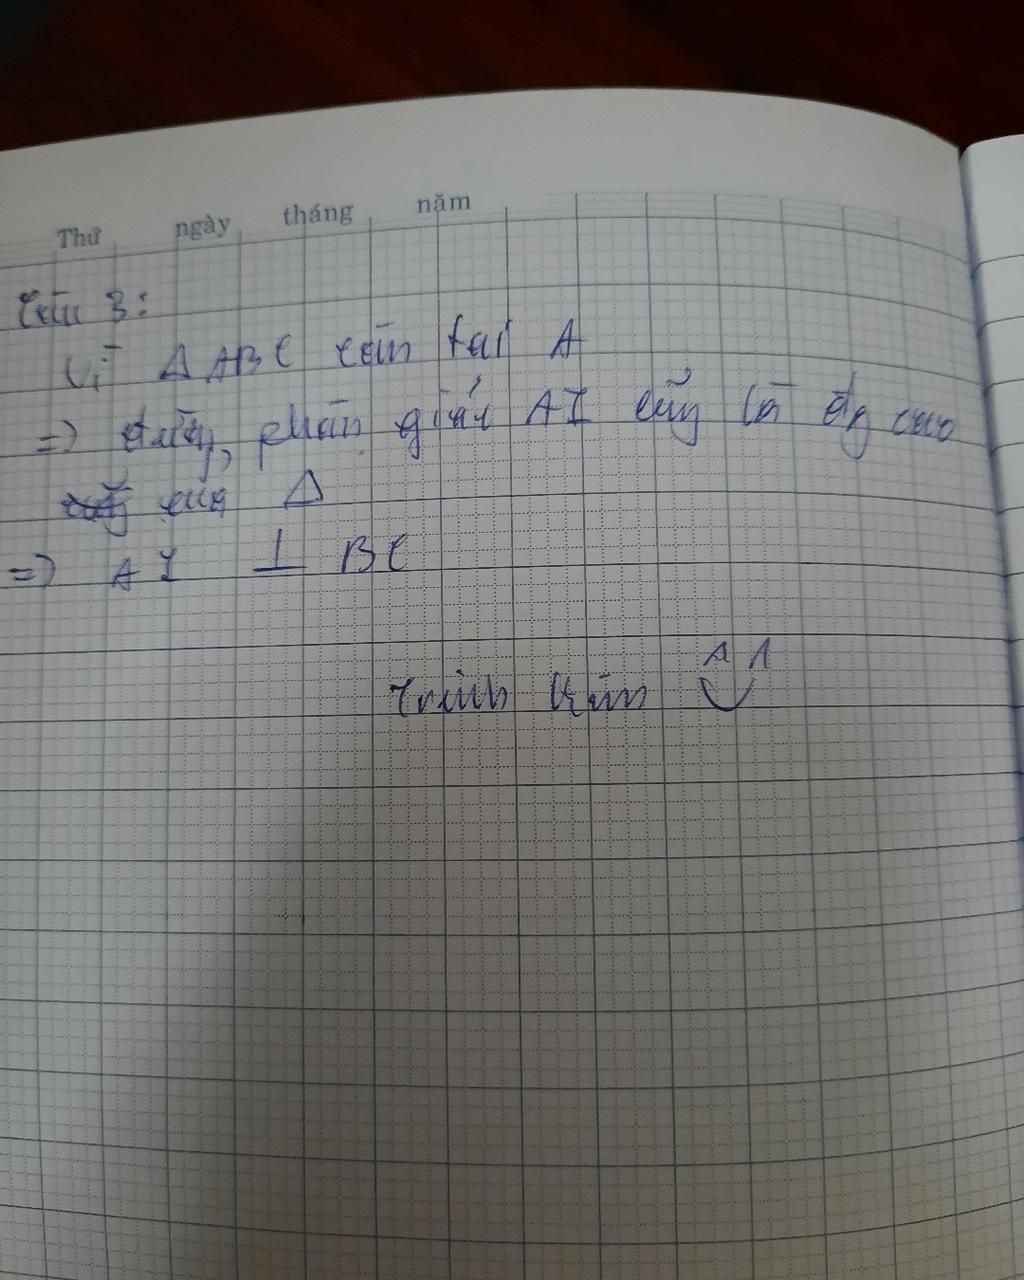 Thứ ngày tháng năm
Câu 3:
Vì Δ ABC cân tại A
=> đường phân giác AI cũng là đg cao
của Δ
=> AI ⊥ BC
Trình